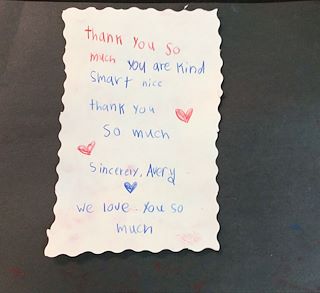 thank you so
much you are kind
Smart nice
thank you
so much
Sincerely, Avery
we love you so
much